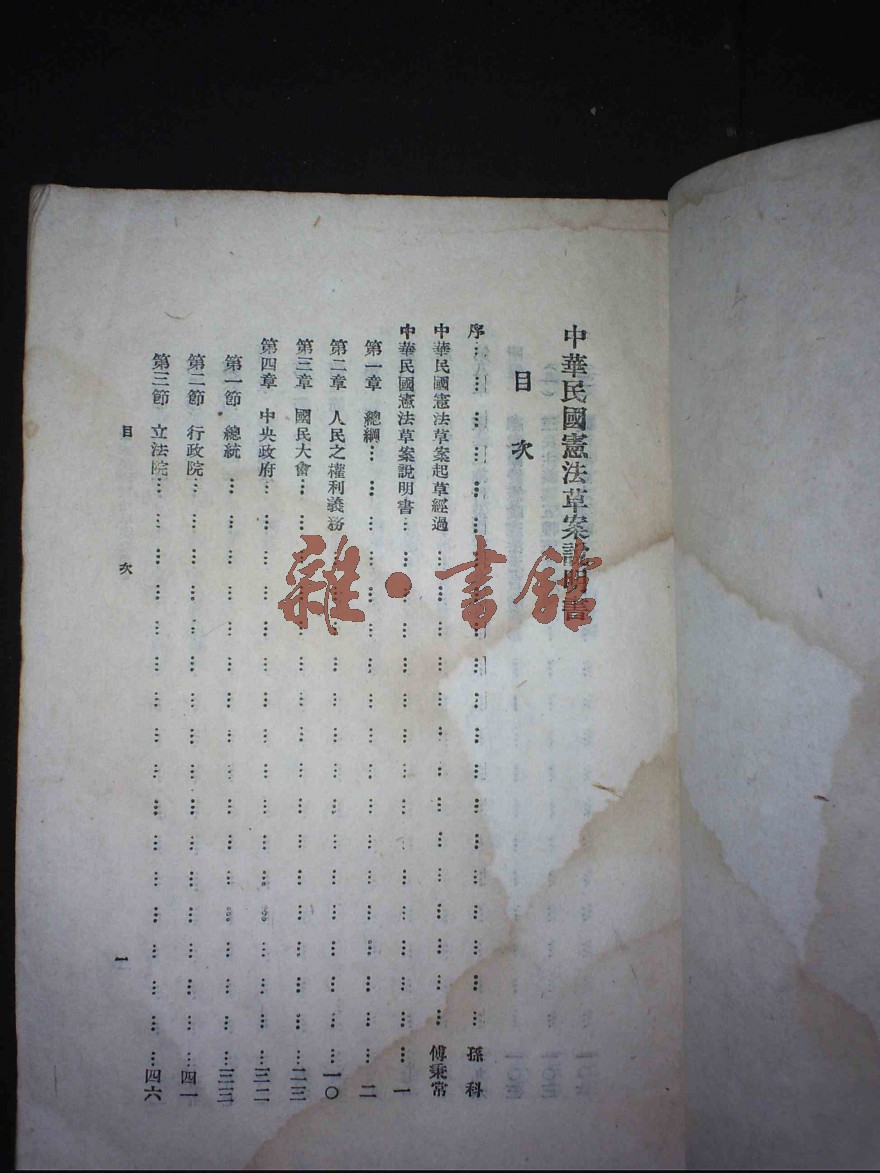 中華民國憲法草案說明書
目次
序⋯⋯⋯⋯⋯⋯⋯⋯⋯⋯孫科
中華民國憲法草案起草經過⋯⋯⋯⋯⋯⋯⋯⋯傅秉常
中華民國憲法草案說明書⋯⋯⋯⋯⋯⋯⋯⋯一
第一章 總綱⋯⋯⋯⋯⋯⋯⋯⋯二
第二章 人民之權利義務⋯⋯⋯⋯⋯⋯⋯⋯一〇
第三章 國民大會⋯⋯⋯⋯⋯⋯⋯⋯二三
第四章 中央政府⋯⋯⋯⋯⋯⋯⋯⋯三二
第一節 總統⋯⋯⋯⋯⋯⋯⋯⋯三三
第二節 行政院⋯⋯⋯⋯⋯⋯⋯⋯四一
第三節 立法院⋯⋯⋯⋯⋯⋯⋯⋯四六
目次 一
雜·書館